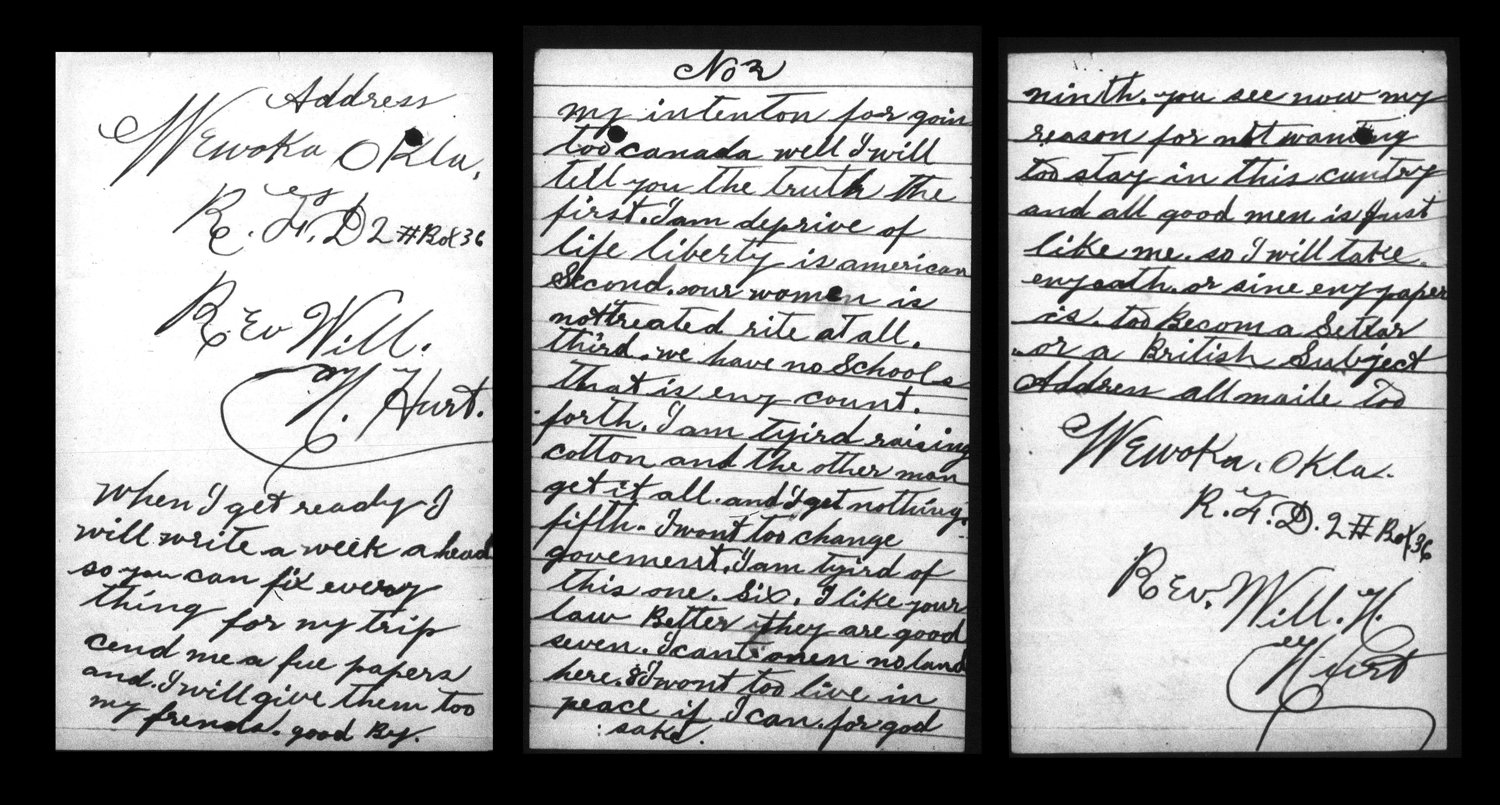 Address
Wewoka Okla,
R. F. D 2 # Box 36
Rev Will.
H. Hurt.
when I get ready I
will write a week a head
so you can fix every
thing for my trip
cend me a fue papers
and. I will give them too
my frends. good By.
No 2
my intenton for goin
too canada well I will
tell you the truth the
first. I am deprive of
life liberty is american
Second. our women is
not treated rite at all.
third. we have no Schools
that is eny count.
forth. I am tyird raising
cotton and the other man
get it all. and I get nothing.
fifth. I wont too change
govement. I am tyird of
this one. Six. I like your
law Better they are good
seven. I cant onen no land
here. 8 I wont too live in
peace if I can. for god
sake.
ninth. you see now my
reason for not wanting
too stay in this cuntry
and all good men is Just
like me. so I will take
eny oath. or sine eny paper
is. too Becom a Setlar
or a British Subject
Address all maile too
Wewoka. Okla.
R. F. D. 2 # Box 36
Rev. Will. H.
Hurt